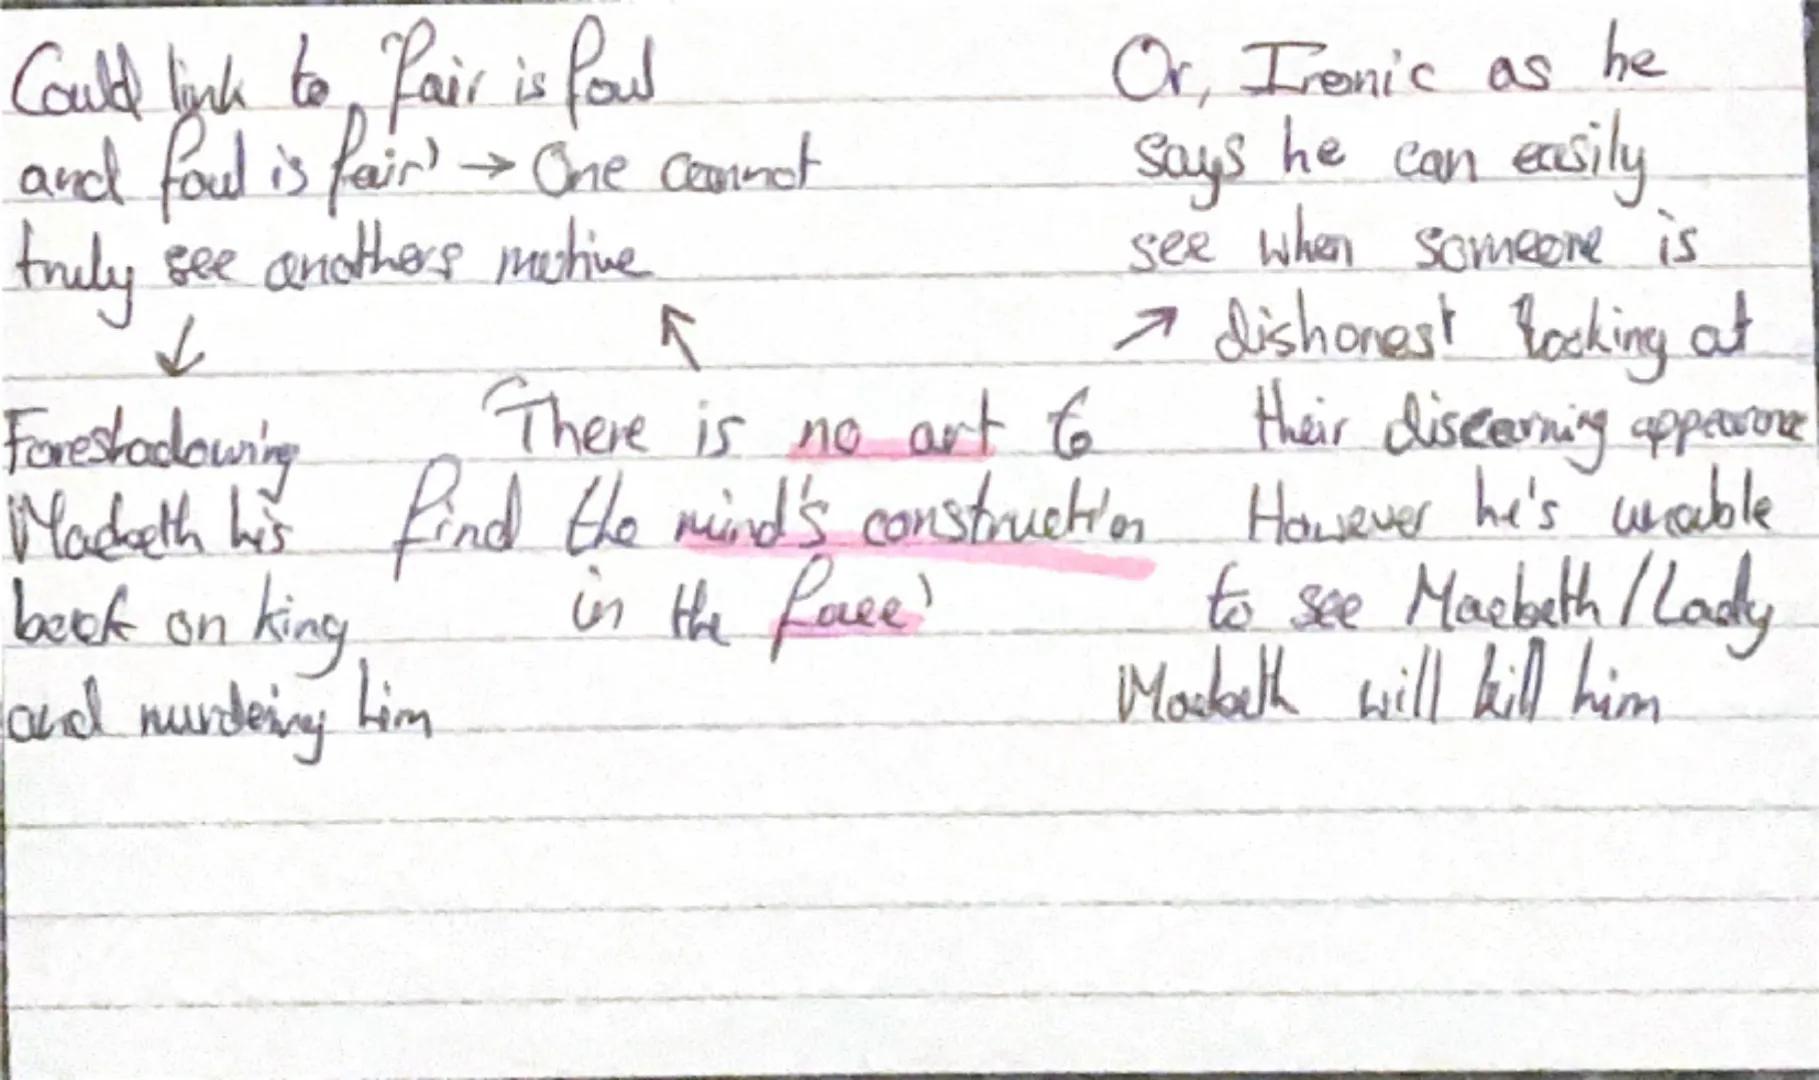 Could link to 'fair is foul
and foul is fair' → One cannot
truly see anothers motive
↓
Foreshadowing
Macbeth his
back on king
and murdering him
↖
'There is no art to
find the mind's construction
in the face'
Or, Ironic as he
says he can easily
see when someone is
↗ dishonest looking at
their discerning appearance
However he's unable
to see Macbeth / Lady
Macbeth will kill him